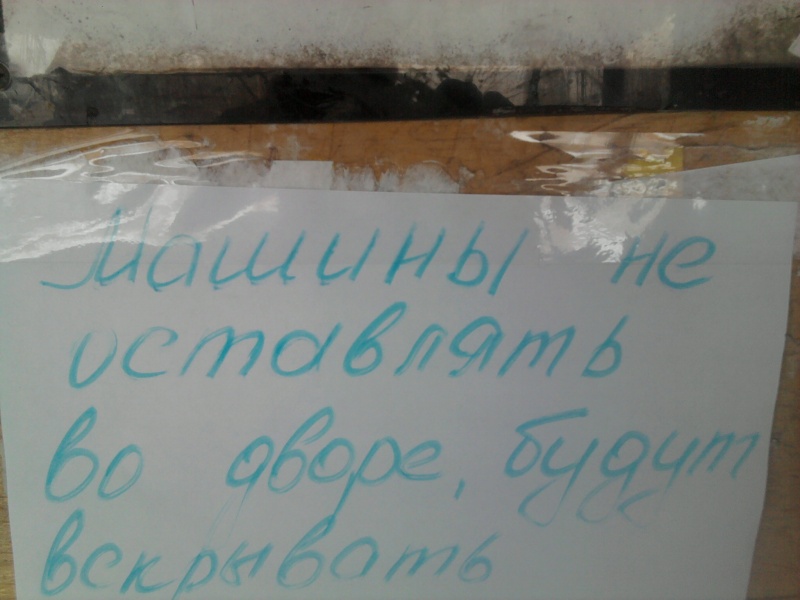 Машины не
оставлять
во дворе, будут
вскрывать